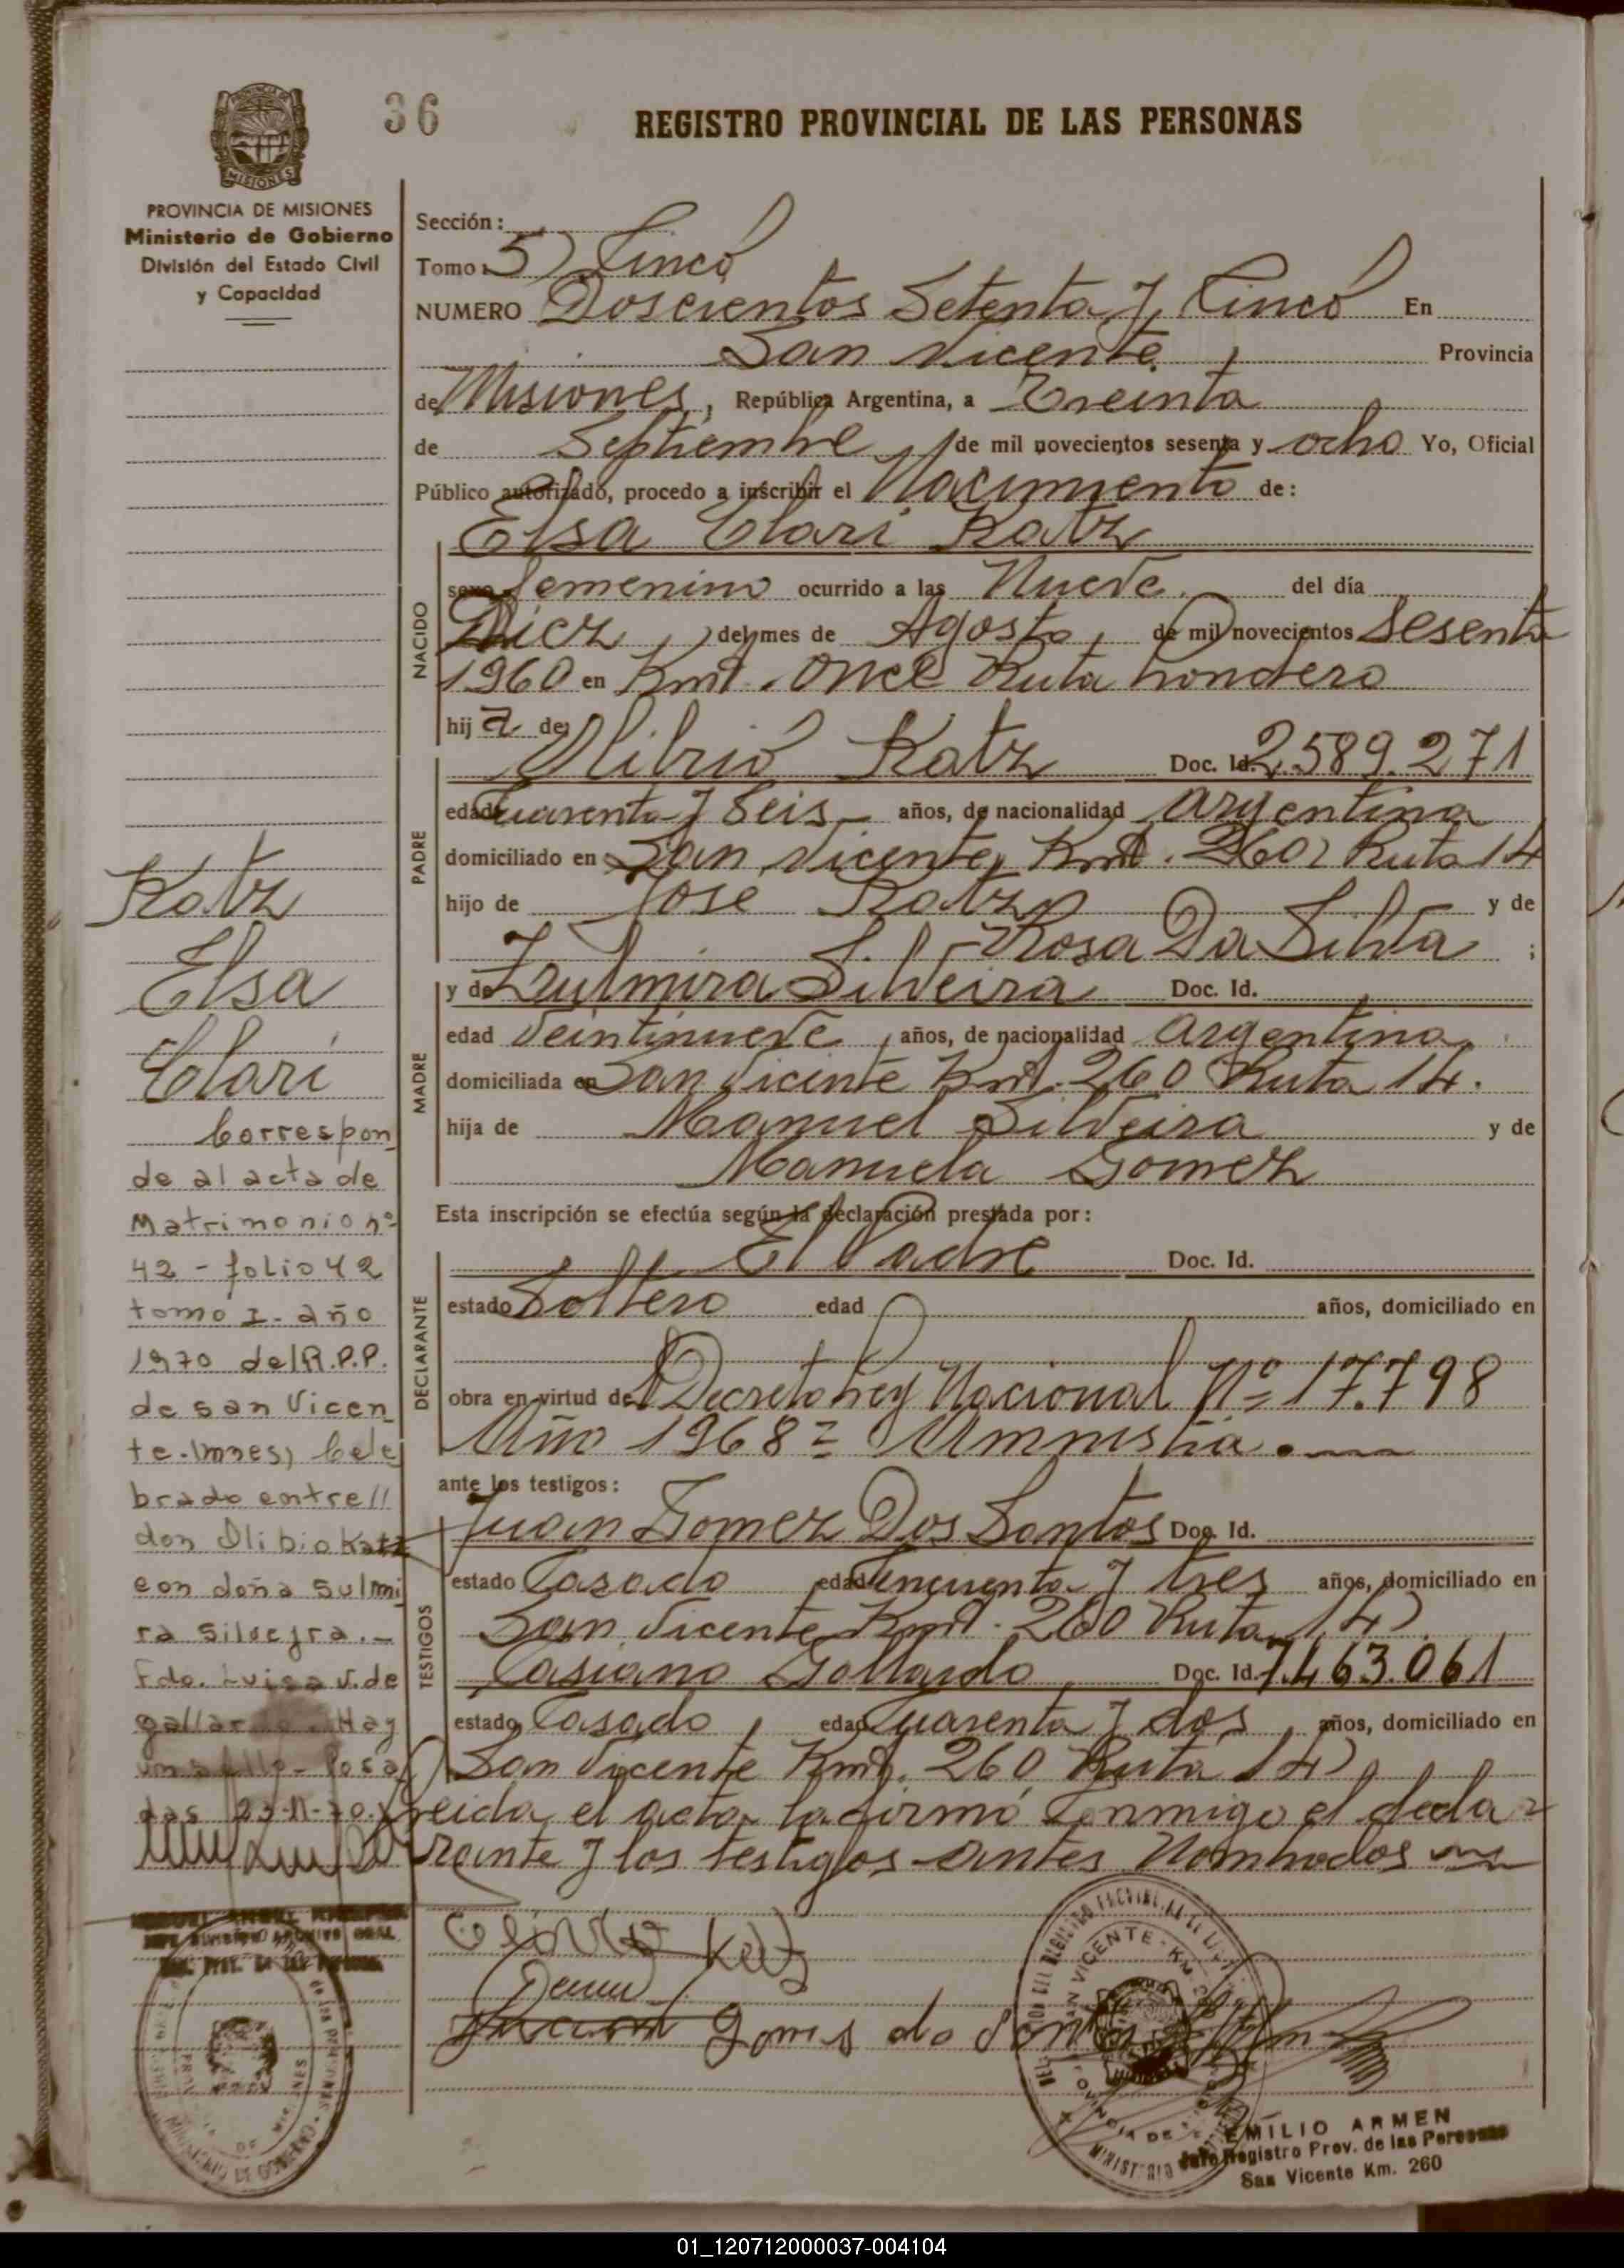 36
REGISTRO PROVINCIAL DE LAS PERSONAS
MISIONES
PROVINCIA DE MISIONES
Ministerio de Gobierno
División del Estado Civil
y Capacidad
Sección:
Tomo: 5) Cinco
NUMERO Doscientos Setenta y Cinco En
San Vicente, Provincia
de Misiones, República Argentina, a Treinta
de Septiembre, de mil novecientos sesenta y ocho Yo, Oficial
Público autorizado, procedo a inscribir el Nacimiento de:
Elsa Clari Katz
NACIDO
sexo femenino ocurrido a las Nueve. del día
Diez, del mes de Agosto, de mil novecientos Sesenta
1960 en Kmt. Once Ruta
hij a de
PADRE
Olibrio Katz Doc. Id. 2.589.271
edad Cuarenta y Seis años, de nacionalidad Argentina
domiciliado en San Vicente, Kmt. 260, Ruta 14
hijo de Jose Katz y de
Rosa Da Silva ;
MADRE
y de Zulmira Silveira Doc. Id.
edad Veintinueve, años, de nacionalidad Argentina,
domiciliada en San Vicente Kmt. 260 Ruta 14.
hija de Manuel Silveira y de
Manuela Gomez
Esta inscripción se efectúa según la declaración prestada por:
DECLARANTE
El Padre Doc. Id.
estado Soltero edad años, domiciliado en
obra en virtud de Decreto Ley Nacional Nº 17.798
Año 1968= Amnistia.
ante los testigos:
TESTIGOS
Juan Gomez Dos Santos Doc. Id.
estado Casado edad Cincuenta y tres años, domiciliado en
San Vicente Kmt. 260 Ruta 14)
Casiano Gallardo Doc. Id. 7.463.061
estado Casado, edad Cuarenta y dos, años, domiciliado en
San Vicente Kmt. 260 Ruta 14)
Leida el acta, la firmó Conmigo el decla=
rante y los testigos antes Nombrados
Katz
Gomes do
EMILIO ARMEN
Jefe Registro Prov. de las Personas
San Vicente Km. 260
Katz
Elsa
Clari
Correspon
de al acta de
Matrimonio nº
42 - folio 42
tomo I - año
1970 del R.P.P.
de san Vicen
te - (mnes) Cele
brado entre //
don Olibio Katz
con doña Sulmi
ra Silveyra.-
Fdo. Luisa V. de
gallardo. Hay
un sello - Posa
das 23-11-70.
01_120712000037-004104